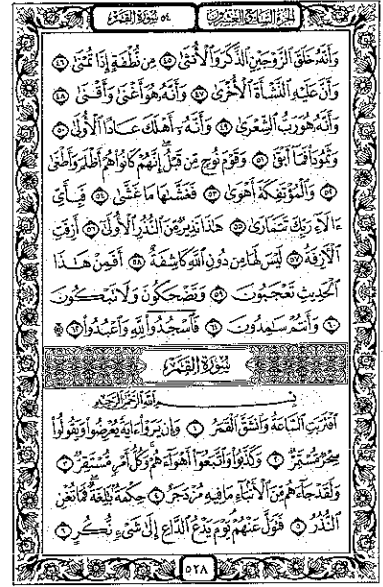 الجزء السابع والعشرون
٥٤ سورة القمر
وَأَنَّهُ خَلَقَ الزَّوْجَيْنِ الذَّكَرَ وَالْأُنثَىٰ ٤٥ مِن نُّطْفَةٍ إِذَا تُمْنَىٰ ٤٦
وَأَنَّ عَلَيْهِ النَّشْأَةَ الْأُخْرَىٰ ٤٧ وَأَنَّهُ هُوَ أَغْنَىٰ وَأَقْنَىٰ ٤٨
وَأَنَّهُ هُوَ رَبُّ الشِّعْرَىٰ ٤٩ وَأَنَّهُ أَهْلَكَ عَادًا الْأُولَىٰ ٥٠
وَثَمُودَا فَمَا أَبْقَىٰ ٥١ وَقَوْمَ نُوحٍ مِّن قَبْلُ إِنَّهُمْ كَانُوا هُمْ أَظْلَمَ وَأَطْغَىٰ
٥٢ وَالْمُؤْتَفِكَةَ أَهْوَىٰ ٥٣ فَغَشَّاهَا مَا غَشَّىٰ ٥٤ فَبِأَيِّ
ءَالَآءِ رَبِّكَ تَتَمَارَىٰ ٥٥ هَٰذَا نَذِيرٌ مِّنَ النُّذُرِ الْأُولَىٰ ٥٦ أَزِفَتِ
الْآزِفَةُ ٥٧ لَيْسَ لَهَا مِن دُونِ اللَّهِ كَاشِفَةٌ ٥٨ أَفَمِنْ هَٰذَا
الْحَدِيثِ تَعْجَبُونَ ٥٩ وَتَضْحَكُونَ وَلَا تَبْكُونَ
٦٠ وَأَنتُمْ سَامِدُونَ ٦١ فَاسْجُدُوا لِلَّهِ وَاعْبُدُوا ۩ ٦٢
سورة القمر
بِسْمِ اللَّهِ الرَّحْمَٰنِ الرَّحِيمِ
اقْتَرَبَتِ السَّاعَةُ وَانشَقَّ الْقَمَرُ ١ وَإِن يَرَوْا ءَايَةً يُعْرِضُوا وَيَقُولُوا
سِحْرٌ مُّسْتَمِرٌّ ٢ وَكَذَّبُوا وَاتَّبَعُوا أَهْوَاءَهُمْ وَكُلُّ أَمْرٍ مُّسْتَقِرٌّ ٣
وَلَقَدْ جَاءَهُم مِّنَ الْأَنبَاءِ مَا فِيهِ مُزْدَجَرٌ ٤ حِكْمَةٌ بَالِغَةٌ فَمَا تُغْنِ
النُّذُرُ ٥ فَتَوَلَّ عَنْهُمْ يَوْمَ يَدْعُ الدَّاعِ إِلَىٰ شَيْءٍ نُّكُرٍ ٦
٥٢٨